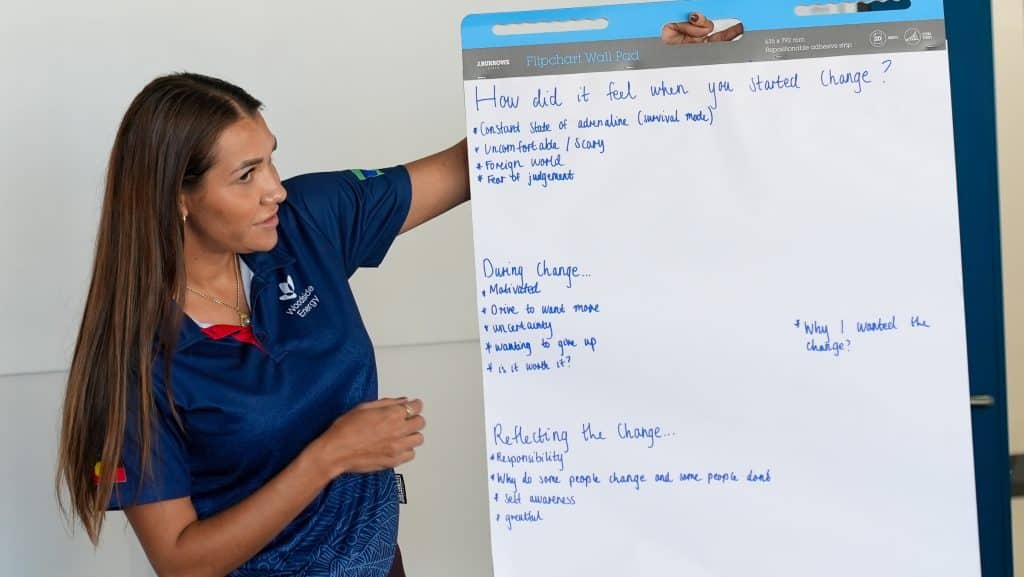 J.BURROWS
Flipchart Wall Pad
635 x 792 mm
Repositionable adhesive strip
20
How did it feel when you started Change?
* Constant state of adrenaline (survival mode)
* Uncomfortable / Scary
* Foreign world
* Fear of judgement
During Change...
* Motivated
* Drive to want more
* uncertainty
* wanting to give up
* is it worth it?
* Why I wanted the
change?
Reflecting the Change...
* Responsibility
* Why do some people change and some people dont
* self awareness
* greatful
Woodside
Energy